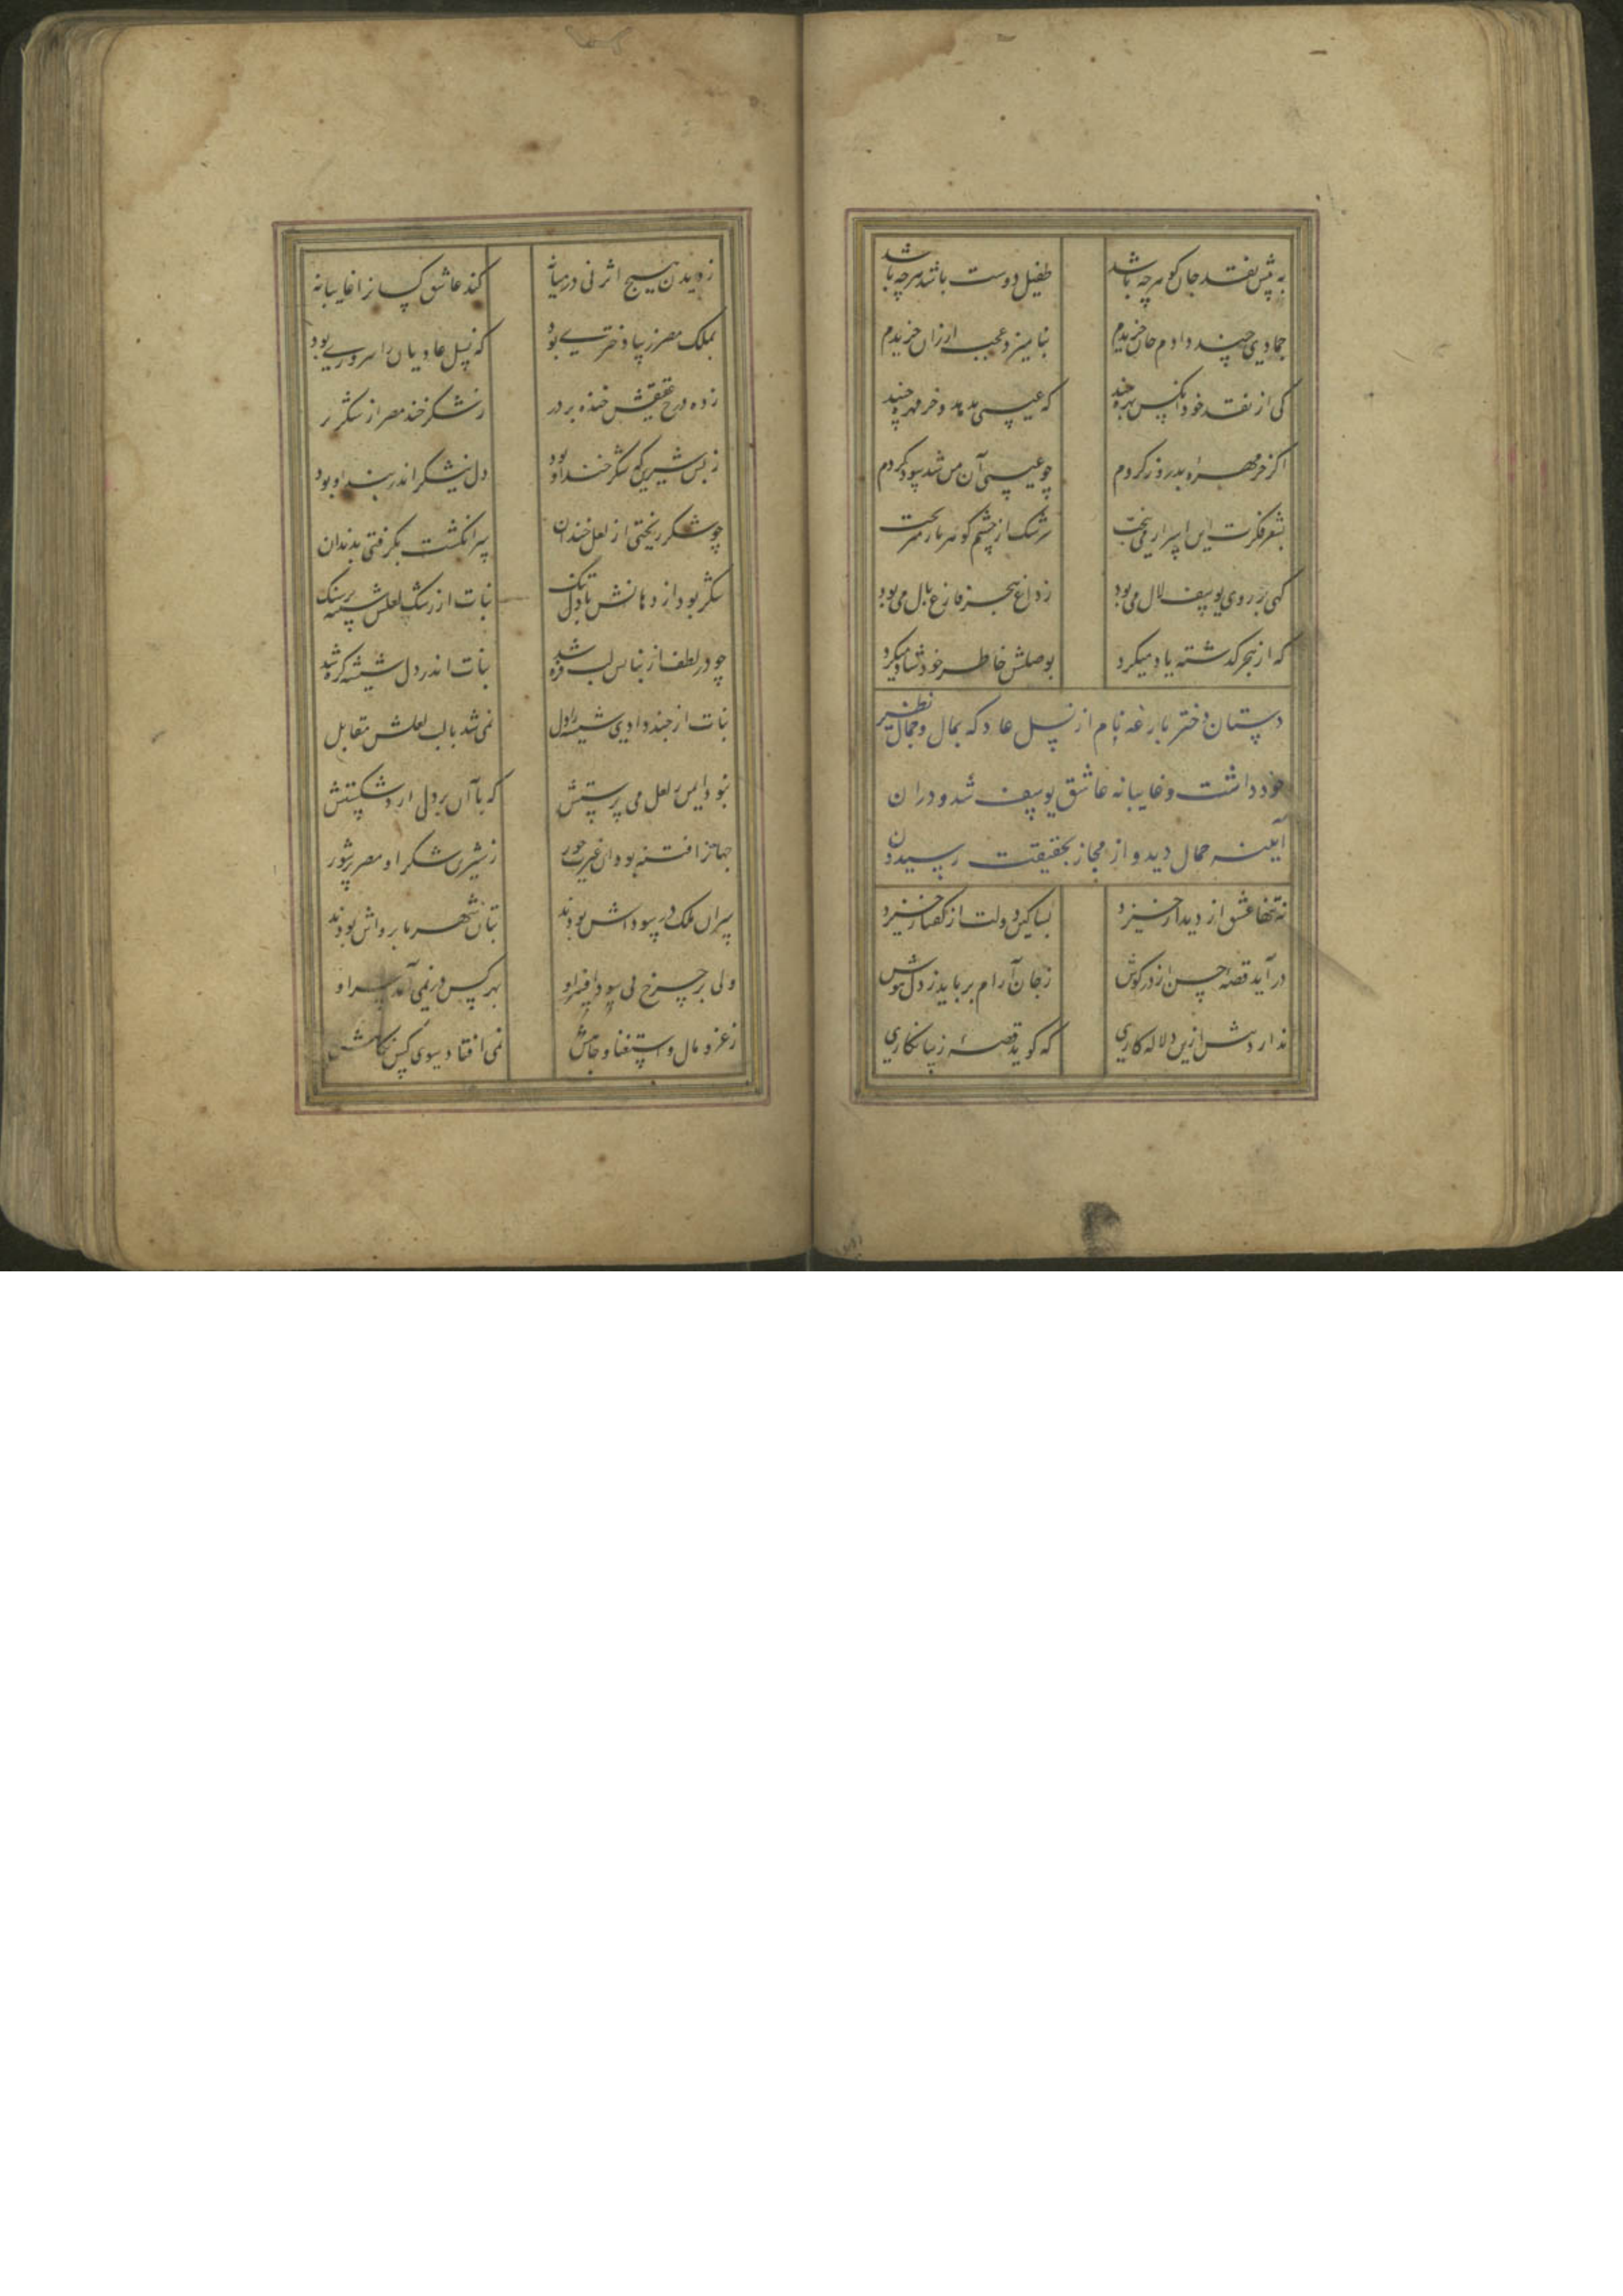 به پیش نقد جان گوهر چه باشد طفیل دوست باشد هر چه باشد
جمادی چند دادم جان خریدم بنامیزد عجب ارزان خریدم
کی از نقد خود آنکس بهره چیند که عیسی بدهد و خرمهره چیند
اگر خرمهره بدرود کردم چو عیسی آن من شد سود کردم
بشعر فکرت این اسرار می بیخت سرشک از چشم گوهربار میریخت
کهی بر روی یوسف لال می بود ز داغ هجر فارغ بال می بود
که از هجر گذشته یاد میکرد بوصلش خاطر خود شاد میکرد
دستان دختر بازغه نام از نسل عاد که بمال و جمال نظیر
خود داشت و غایبانه عاشق یوسف شد و در ان
آیینه جمال دید و از مجاز بحقیقت رسیدن
نه تنها عشق از دیدار خیزد بسا کین دولت از گفتار خیزد
در آید قصه حسن از در کوش ز جان آرام برباید ز دل هوش
ندارد پیش ازین دلاله کاری که گوید قصه زیبا نگاری
ز دیدن هیچ اثر نی در میانه کند عاشق کسانرا غایبانه
بملک مصر زیبا دختری بود که نسل عادیان را سروری بود
زده درج عقیقش خنده بر در ز شکرخند مصر از شکر پر
ز بس شیرین که شکرخند او بود دل نیشکر اندر بند او بود
چو شکر ریختی از لعل خندان سر انگشت بگرفتی بدندان
شکر بود از دهانش با دل تنک نبات از رشک لعلش شیشه بر سنک
چو در لطف از نبات آن لب فزه شد نبات اندر دل شیشه گره شد
نبات از چند دادی شیشه را دل نمی شد با لب لعلش مقابل
نبود ایمن لعل می پرستش که با آن بر دلی آرد شکستش
جهانرا فتنه بود آن غیرت حور ز شیرین شکر او مصر پرشور
سران ملک در سوداش بودند بتان شهر ناپرواش بودند
ولی بر چرخ می سود افسر او بهر کس در نمی آمد سر او
ز عز و مال و استغنا و جاهش نمی افتاد سوی کس نگاهش